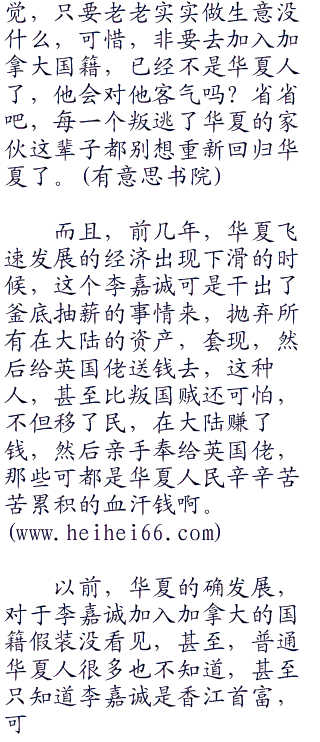 觉，只要老老实实做生意没
什么，可惜，非要去加入加
拿大国籍，已经不是华夏人
了，他会对他客气吗？省省
吧，每一个叛逃了华夏的家
伙这辈子都别想重新回归华
夏了。(有意思书院)
而且，前几年，华夏飞
速发展的经济出现下滑的时
候，这个李嘉诚可是干出了
釜底抽薪的事情来，抛弃所
有在大陆的资产，套现，然
后给英国佬送钱去，这种
人，甚至比叛国贼还可怕，
不但移了民，在大陆赚了
钱，然后亲手奉给英国佬，
那些可都是华夏人民辛辛苦
苦累积的血汗钱啊。
(www.heihei66.com)
以前，华夏的确发展，
对于李嘉诚加入加拿大的国
籍假装没看见，甚至，普通
华夏人很多也不知道，甚至
只知道李嘉诚是香江首富，
可